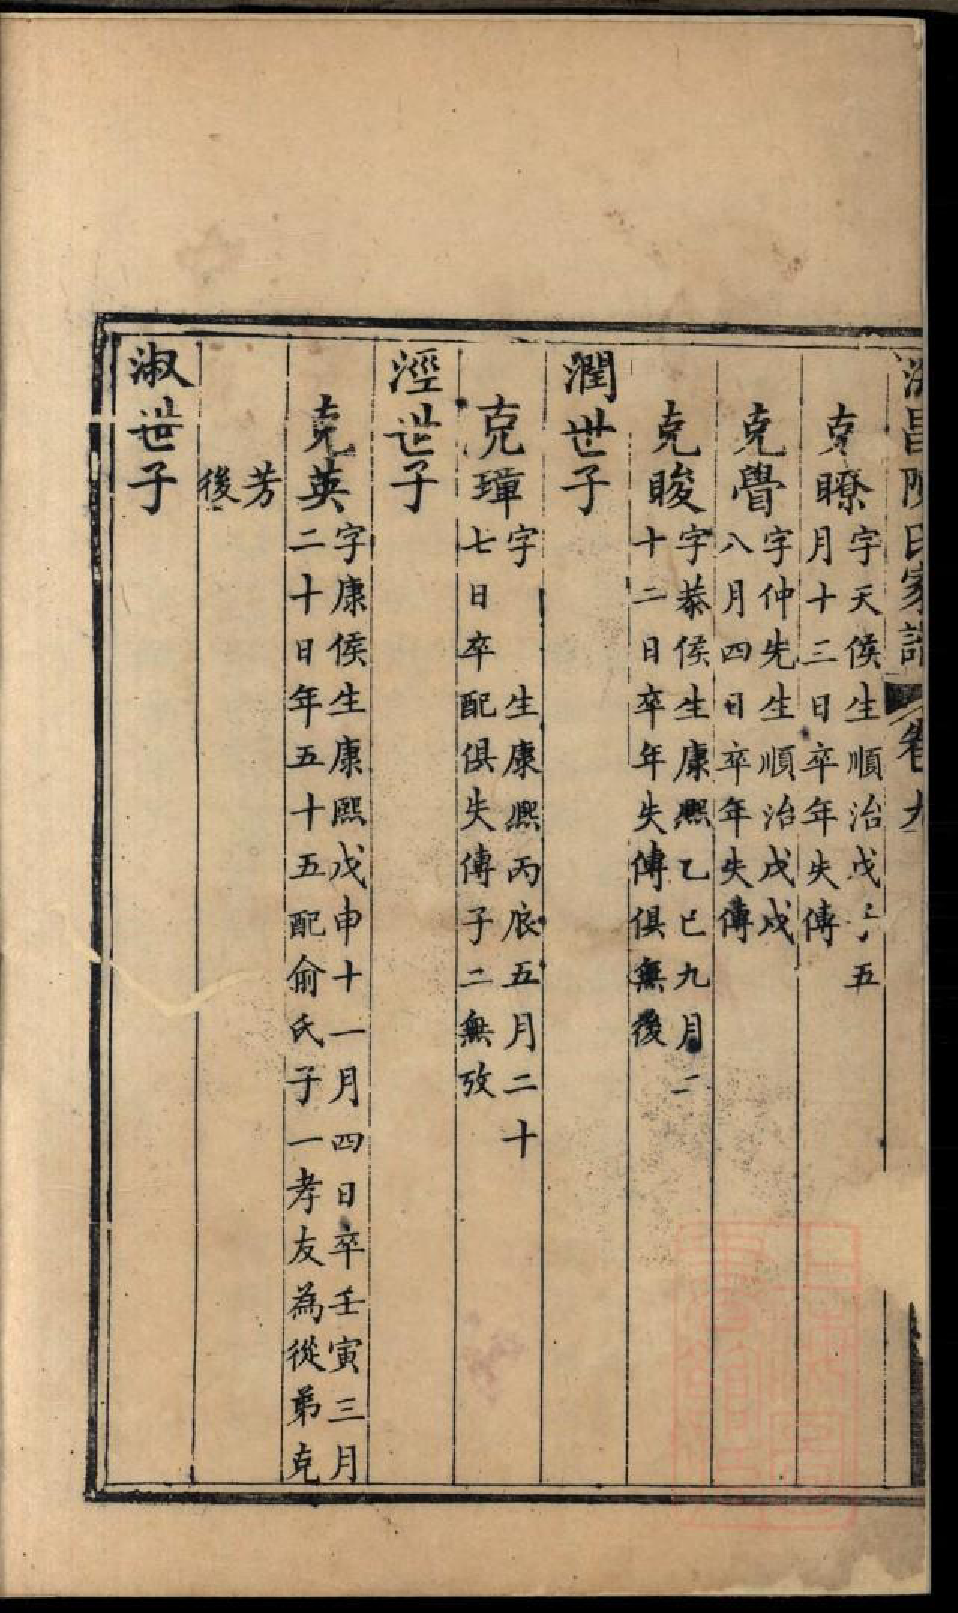 昌陳氏家譜 卷九
克瞭字天侯生順治戊子五
月十三日卒年失傳
克覺字仲先生順治戊戌
八月四日卒年失傳
克睃字恭侯生康熙乙巳九月二
十二日卒年失傳俱無後
潤世子
克璋字 生康熙丙辰五月二十
七日卒配俱失傳子二無攷
涇世子
克英字康侯生康熙戊申十一月四日卒壬寅三月
二十日年五十五配俞氏子一孝友為從弟克
芳
後
淑世子